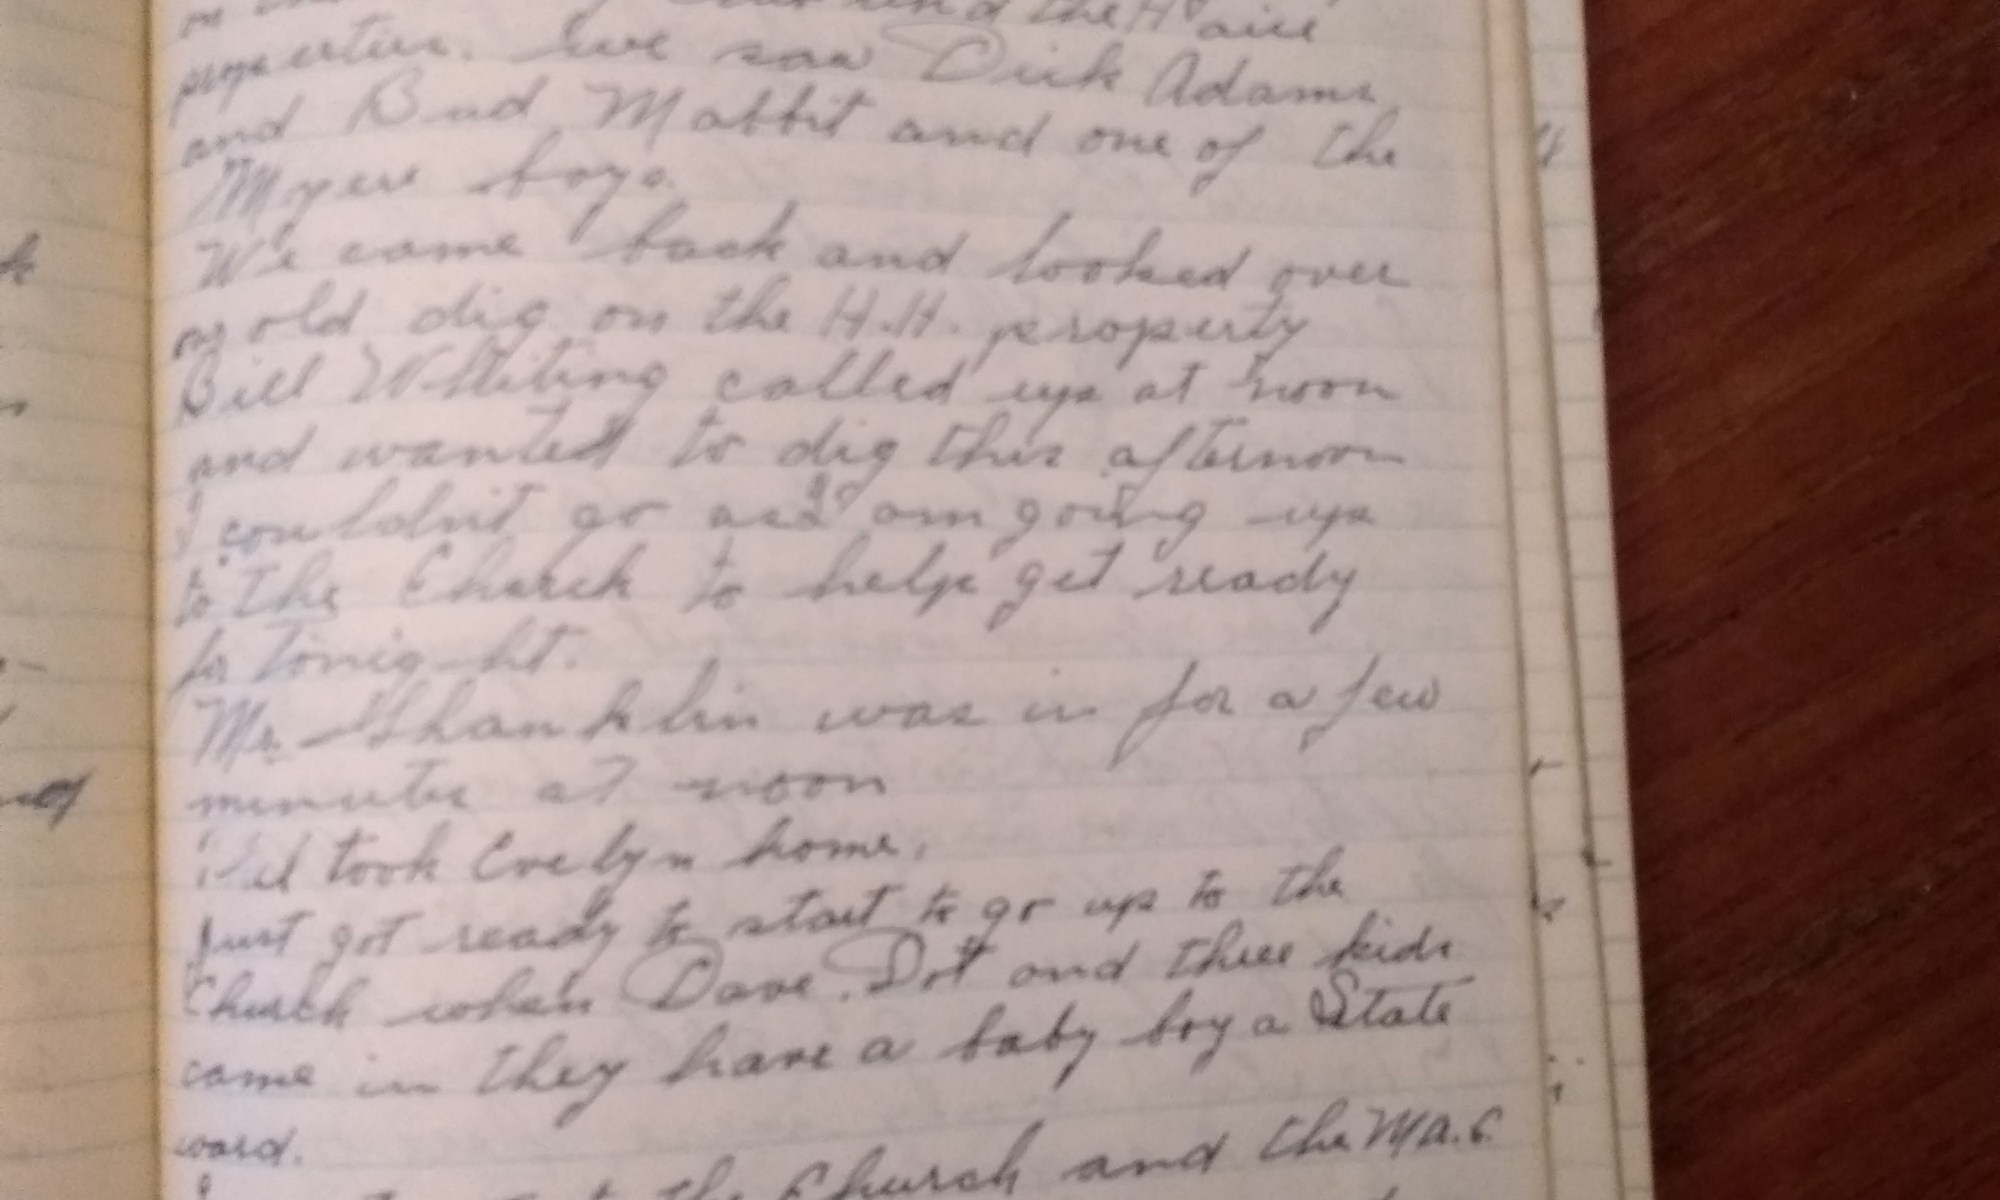 and the H aire
properties. We saw Dick Adams
and Bud Mabbit and one of the
Myers boys.
We came back and looked over
my old dig on the H.H. property
Bill Whiting called up at noon
and wanted to dig this afternoon
I couldn't go as I am going up
to the Church to help get ready
for tonight.
Mr Shanklin was in for a few
minutes at noon
took Evelyn home.
Just got ready to start to go up to the
Church when Dave, Dot and three kids
came in they have a baby boy a State
ward.
the Church and the M.A.C.